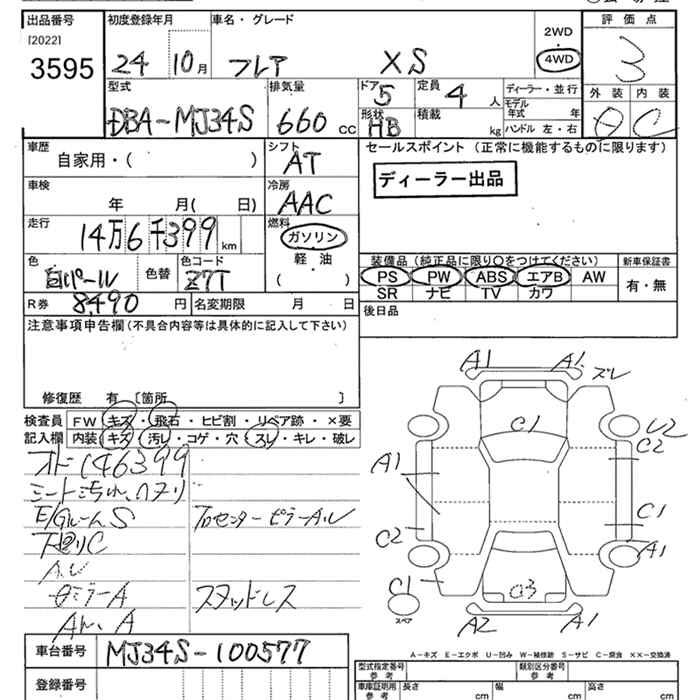 出品番号 初度登録年月 車名・グレード 評価点
[2022]
3595
24 10月 フレア XS
2WD
4WD
3
型式 排気量 ドア 定員 ディーラー・並行 外装 内装
DBA-MJ34S 660 cc 5 4人
形状 積載 モデル年式 年
HB kg ハンドル 左・右
C
車歴 シフト セールスポイント (正常に機能するものに限ります)
自家用・( ) AT
ディーラー出品
車検 冷房
年 月( 日) AAC
走行 燃料
14万6千399km ガソリン
軽油
( )
色 色替 色コード
白パール Z7T
装備品 (純正品に限り○をつけてください) 新車保証書
PS PW ABS エアB AW 有・無
SR ナビ TV カワ
R券 8,490円 名変期限 月 日
後日品
注意事項申告欄 (不具合内容等は具体的に記入して下さい)
修復歴 有 〔箇所 〕
検査員 FW キズ・飛石・ヒビ割・リペア跡・×要
記入欄 内装 キズ・汚レ・コゲ・穴・スレ・キレ・破レ
オド146399
シート汚れ、
E/GルームS
下廻りC
ミラーA
A
センターピラーAル
スタッドレス
A1 A1 ズレ
C1 U2
C2
A1
C1
C2 A1
C1
スペア
G3
A2 A1
A-キズ E-エクボ U-凹み W-補修跡 S-サビ C-腐食 ××-交換済
車台番号 MJ34S-100577
登録番号
型式指定番号 参考 類別区分番号 参考
車庫証明用 参考 長さ cm 幅 cm 高さ cm